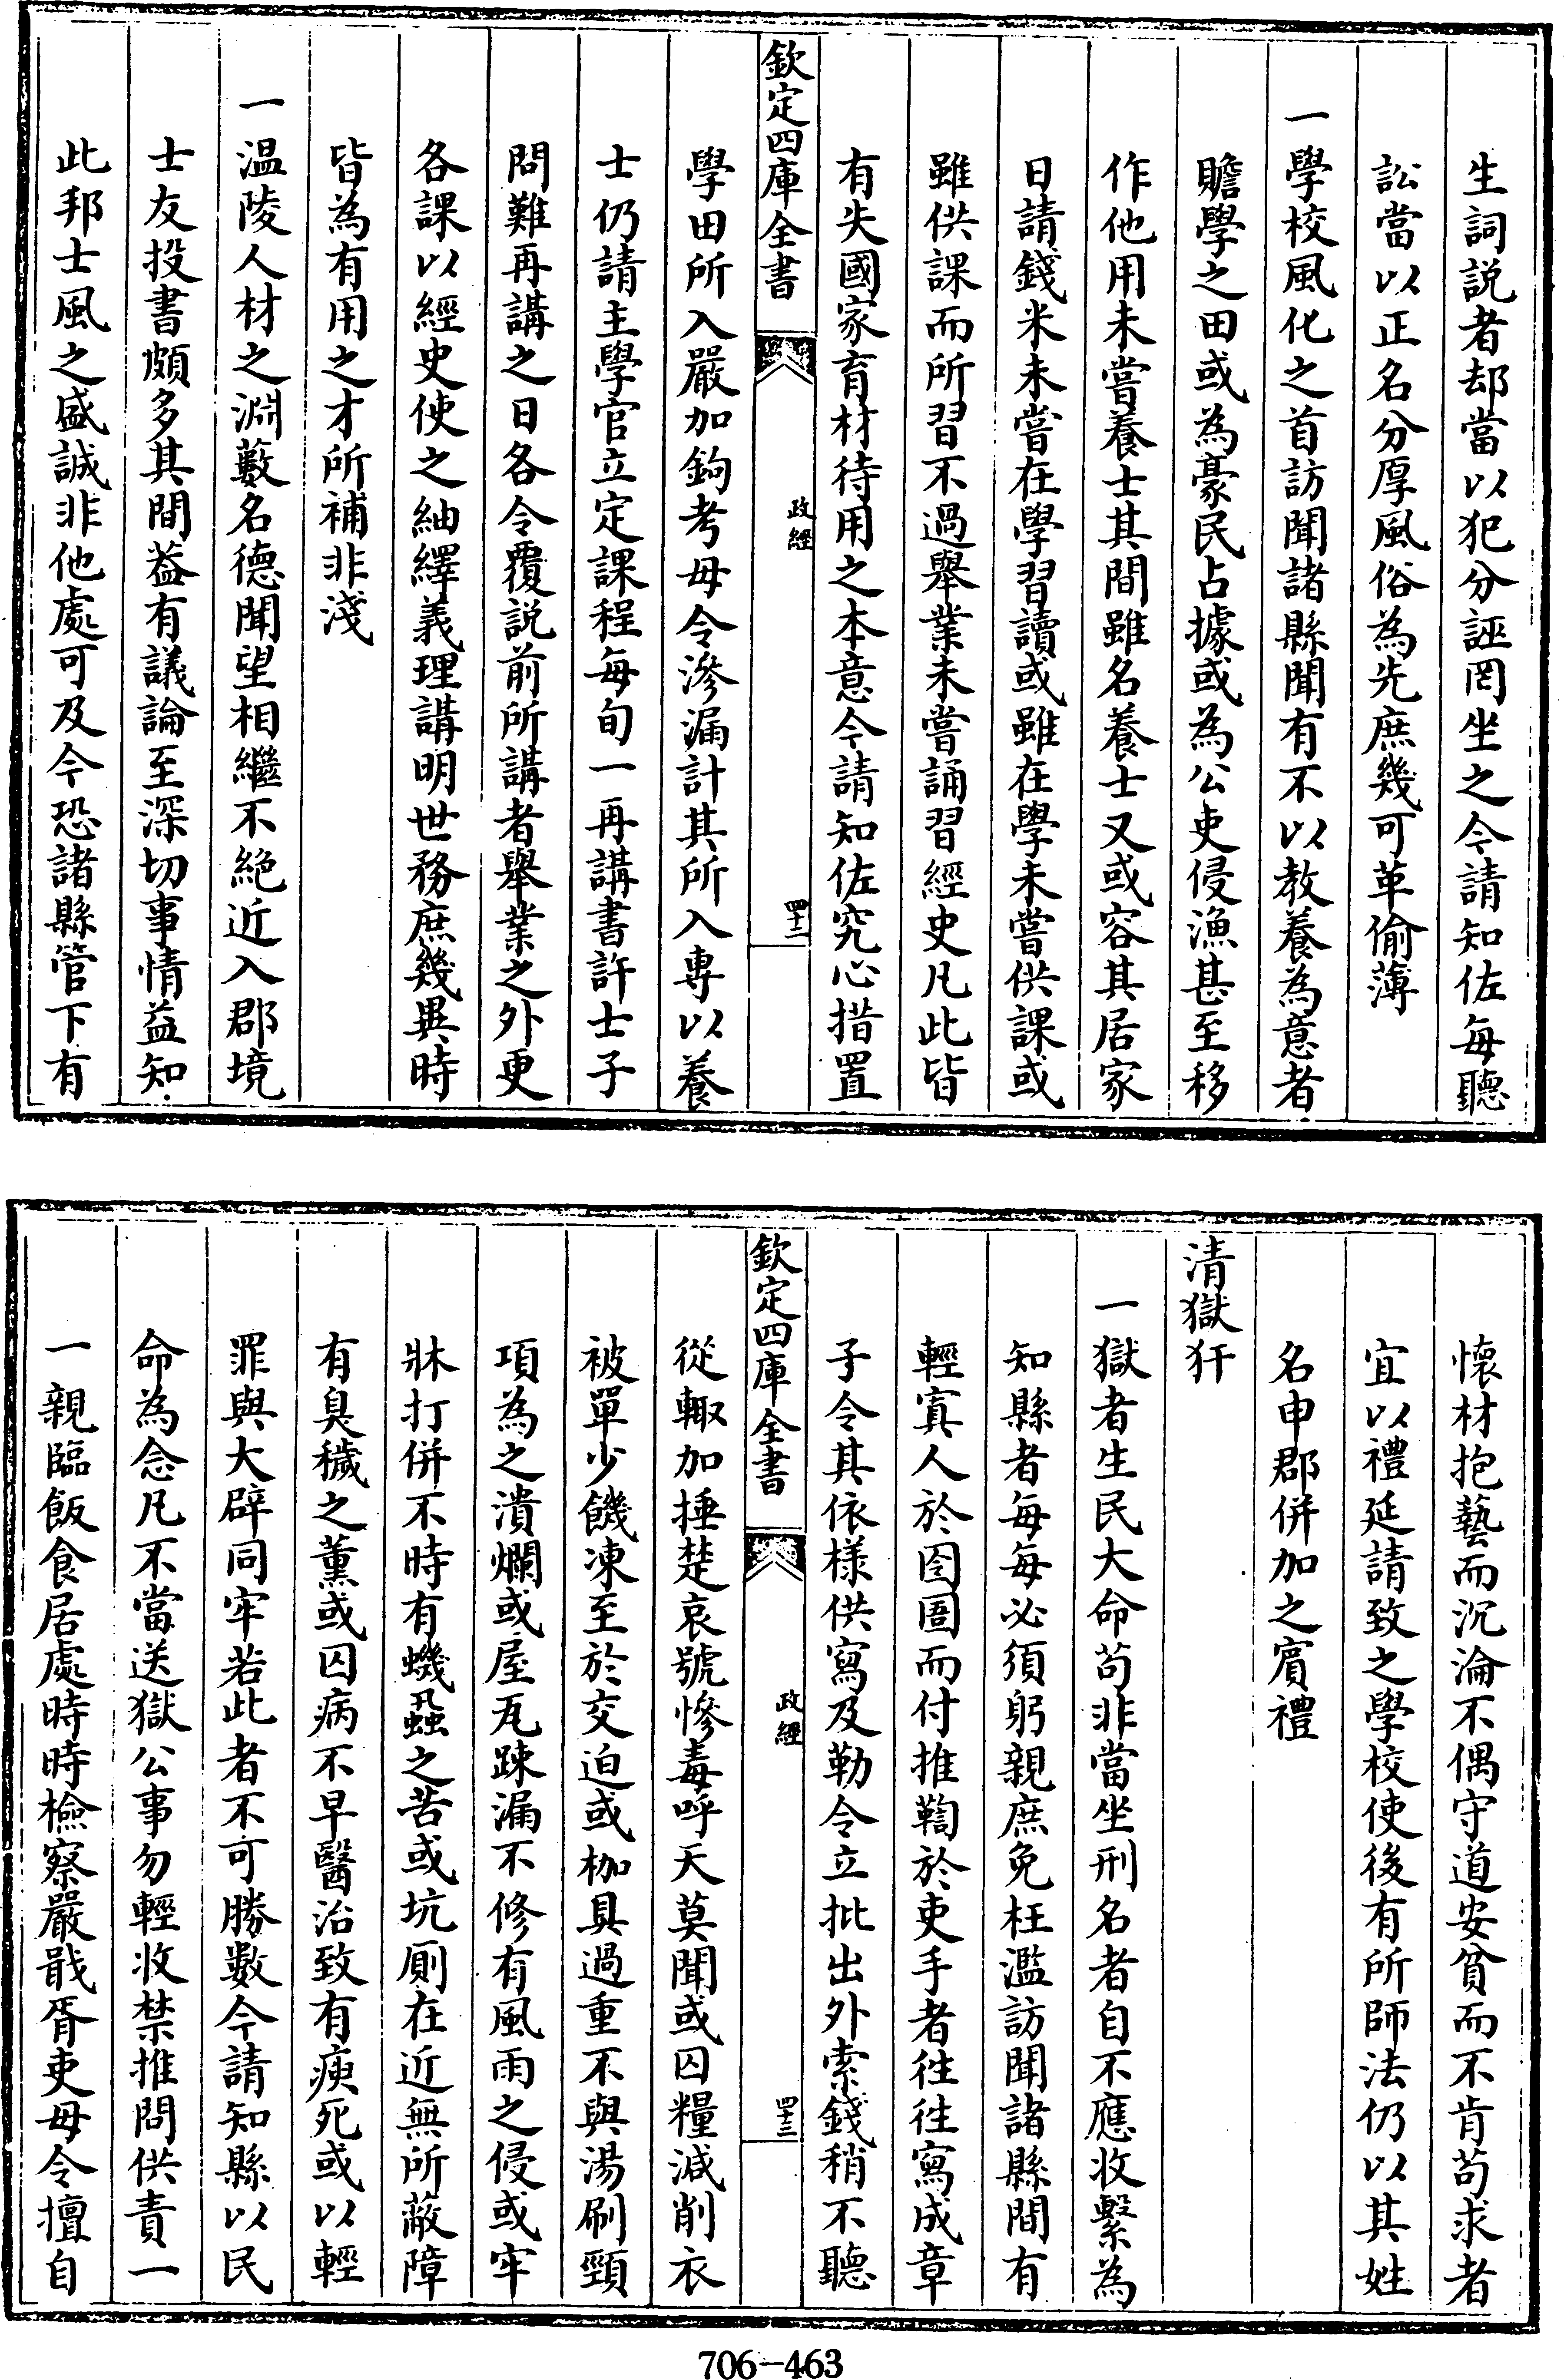 生詞説者却當以犯分誣罔坐之今請知佐每聽
訟當以正名分厚風俗為先庶幾可革偷薄
一學校風化之首訪聞諸縣聞有不以教養為意者
贍學之田或為豪民占據或為公吏侵漁甚至移
作他用未嘗養士其間雖名養士又或容其居家
日請錢米未嘗在學習讀或雖在學未嘗供課或
雖供課而所習不過舉業未嘗誦習經史凡此皆
有失國家育材待用之本意今請知佐究心措置
欽定四庫全書
政經
四十二
學田所入嚴加鉤考毋令滲漏計其所入專以養
士仍請主學官立定課程每旬一再講書許士子
問難再講之日各令覆説前所講者舉業之外更
各課以經史使之紬繹義理講明世務庶幾異時
皆為有用之才所補非淺
一温陵人材之淵藪名德聞望相繼不絶近入郡境
士友投書頗多其間葢有議論至深切事情益知
此邦士風之盛誠非他處可及今恐諸縣管下有
懐材抱藝而沉淪不偶守道安貧而不肯苟求者
宜以禮延請致之學校使後有所師法仍以其姓
名申郡併加之賔禮
清獄犴
一獄者生民大命苟非當坐刑名者自不應收繫為
知縣者每每必須躬親庶免枉濫訪聞諸縣間有
輕寘人於囹圄而付推鞫於吏手者徃徃寫成章
子令其依樣供寫及勒令立批出外索錢稍不聽
欽定四庫全書
政經
四十三
從輙加捶楚哀號慘毒呼天莫聞或囚糧減削衣
被單少饑凍至於交迫或枷具過重不與湯刷頸
項為之潰爛或屋瓦踈漏不修有風雨之侵或牢
牀打併不時有蟣蝨之苦或坑厠在近無所蔽障
有臭穢之薰或囚病不早醫治致有瘐死或以輕
罪與大辟同牢若此者不可勝數今請知縣以民
命為念凡不當送獄公事勿輕收禁推問供責一
一親臨飯食居處時時檢察嚴戢胥吏毋令擅自
706-463